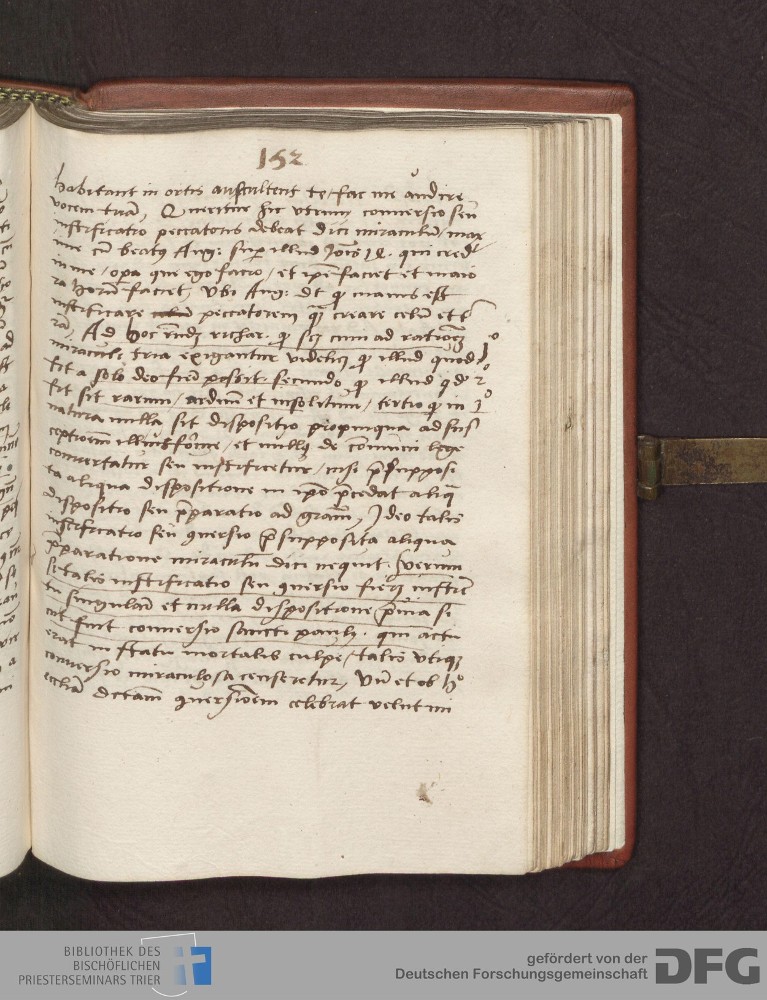 152
habitant in ortis auscultent te / fac me audire
vocem tuā, Queritur hic utrum conversio seu
iustificatio peccatoris debeat dici miraculū / max
ime cū beatꝰ Aug: sup illud Joīs 14. qui credit
in me / opa que ego facio / et ipe faciet et maio
ra horū faciet, Ubi Aug: dt qꝫ maius est
iustificare peccatorem qꝫ creare celū et t
rā, Ad hoc rūdꝫ richar. qꝫ ad rationē
miraculi tria exigantur videlicꝫ qꝫ illud quod 1º
fit a solo deo fieri possit. secundo qꝫ illud qd 2º
fit sit rarum / arduū et insolitum / tertio qꝫ in 3º
natura nulla sit dispositio propinqua ad sus
ceptionem illius forme / et nullꝰ de cōmuni lege
convertatur seu iustificetur / nisi p̄supposi
ta aliqua dispositione in ipo p̄cedat aliq̄
dispositio seu p̄paratio ad gram̄, Ideo talis
iustificatio seu ꝯversio p̄supposita aliqua
p̄paratione miraculū dici nequit. Verum
si talis iustificatio seu ꝯversio fieri
tū singulari et nulla dispositione p̄via si
cut fuit conversio sancti pauli. qui actu
erat in statu mortalis culpe / talis utiqꝫ
conversio miraculosa censeretur, Uñ et ob hº
ecclīa dictam ꝯversionem celebrat velut mi
BIBLIOTHEK DES
BISCHÖFLICHEN
PRIESTERSEMINARS TRIER
gefördert von der
Deutschen Forschungsgemeinschaft
DFG